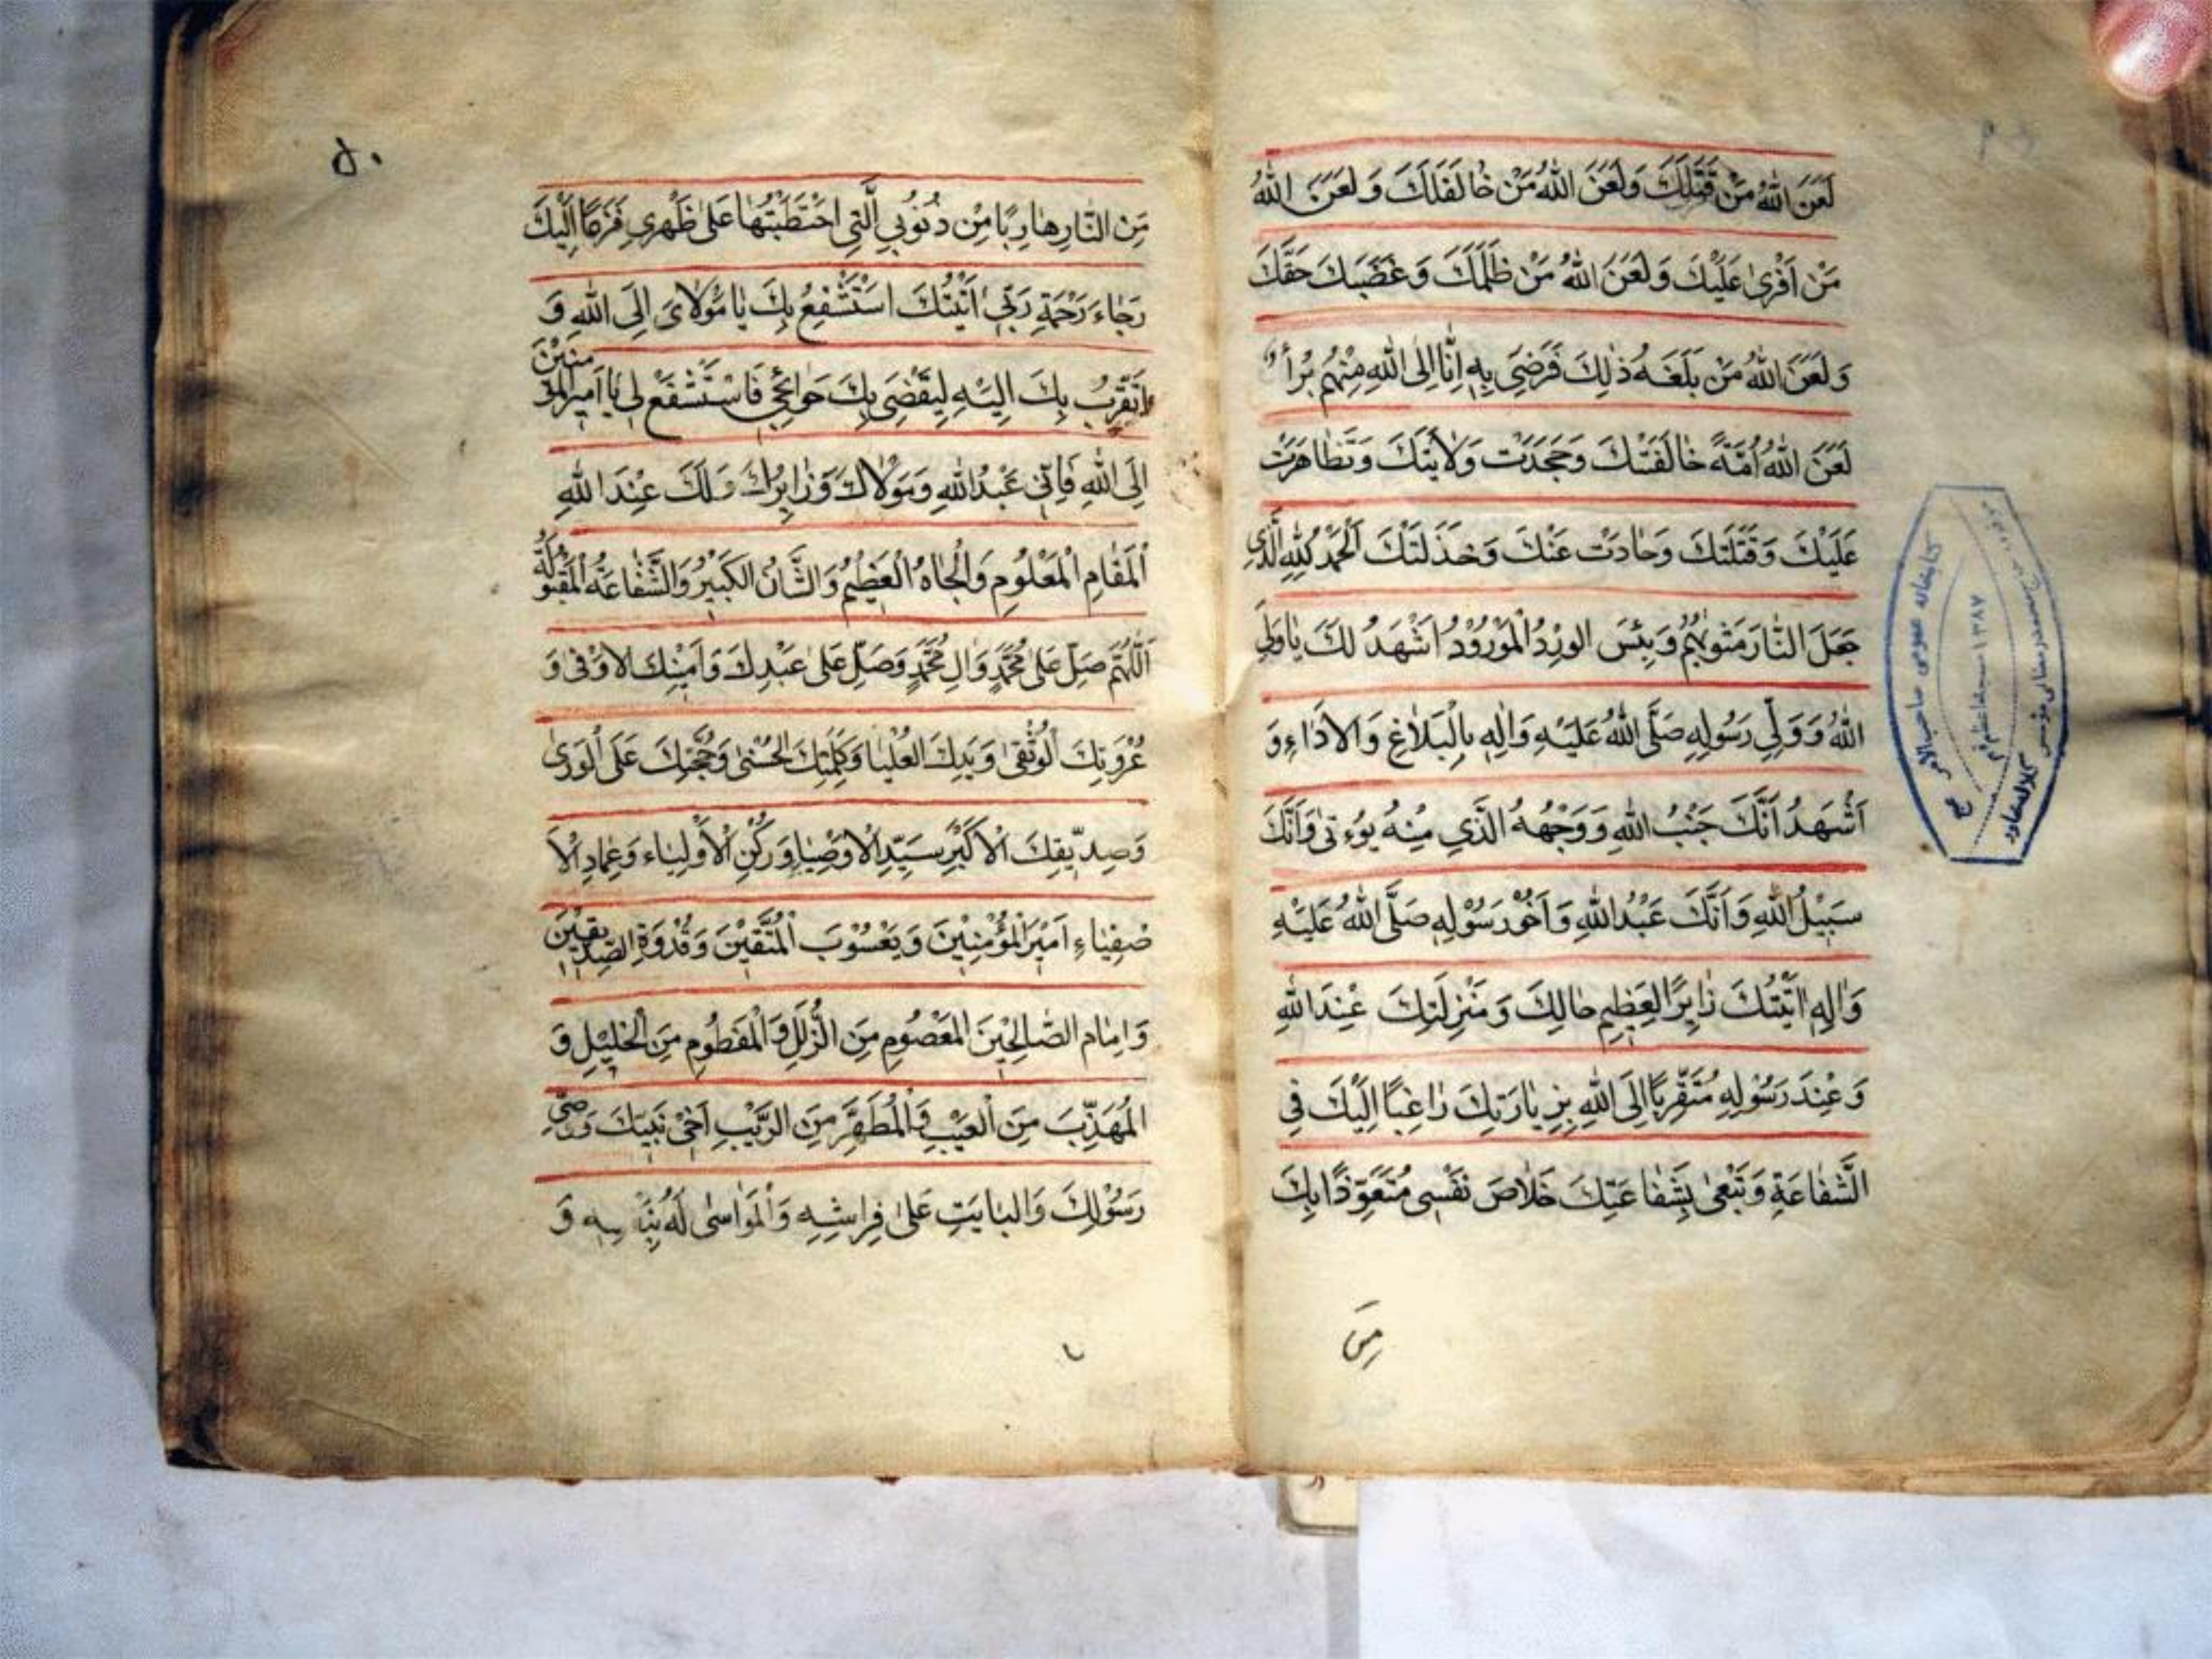 لَعَنَ اللهُ مَنْ قَتَلَكَ وَلَعَنَ اللهُ مَنْ خٰالَفَكَ وَلَعَنَ اللهُ
مَنْ اَفْرىٰ عَلَيْكَ وَلَعَنَ اللهُ مَنْ ظَلَمَكَ وَغَضَبَكَ حَقَّكَ
وَلَعَنَ اللهُ مَن بَلَغَهُ ذٰلِكَ فَرَضِىَ بِهِ اِنّٰا اِلَى اللهِ مِنْهُمْ بُرَأٰ
لَعَنَ اللهُ اُمَّةً خٰالَفَتْكَ وَجَحَدَتْ وَلٰايَتَكَ وَتَظٰاهَرَتْ
عَلَيْكَ وَقَتَلَتْكَ وَحٰادَتْ عَنْكَ وَخَذَلَتْكَ اَلْحَمْدُ لِلّٰهِ الَّذِى
جَعَلَ النّٰارَ مَثْوٰيهُمْ وَبِئْسَ الوِرْدُ الْمَوْرُوْدُ اَشْهَدُ لَكَ يٰا وَلِىَّ
اللهِ وَوَلِىِّ رَسُوْلِهِ صَلَّى اللهُ عَلَيْهِ وَاٰلِهِ بِالْبَلٰاغِ وَالْاَدٰاءِ وَ
اَشْهَدُ اَنَّكَ جَنْبُ اللهِ وَوَجْهُهُ الَّذِي مِنْهُ يُوءْتىٰ وَاَنَّكَ
سَبِيْلُ اللهِ وَاَنَّكَ عَبْدُ اللهِ وَاَخُوْ رَسُوْلِهِ صَلَّى اللهُ عَلَيْهِ
وَاٰلِهِ اَتَيْتُكَ زٰايِرًا لِعَظِيمِ حٰالِكَ وَمَنْزِلَتِكَ عِنْدَ اللهِ
وَعِنْدَ رَسُوْلِهِ مُتَقَرِّبًا اِلَى اللهِ بِزِيٰارَتِكَ رٰاغِبًا اِلَيْكَ فِى
الشَّفٰاعَةِ وَتَبْغىٰ بِشَفٰاعَتِكَ خَلٰاصَ نَفْسِى مُتَعَوِّذًا بِكَ
مِنَ
۵۰
مِنَ النّٰارِ هٰارِبًا مِنْ ذُنُوْبِي الَّتِى احْتَطَبْتُهٰا عَلىٰ ظَهْرِى فَزِعًا اِلَيْكَ
رَجٰاءَ رَحْمَةِ رَبِّى اَتَيْتُكَ اَسْتَشْفِعُ بِكَ يٰا مَوْلٰاىَ اِلَى اللهِ وَ
اَتَقَرَّبُ بِكَ اِلَيْهِ لِيَقْضِىَ بِكَ حَوٰائِجِى فَاسْتَشْفَعْ لِى يٰا اَمِيرَ الْمُؤمِنِيْنَ
اِلَى اللهِ فَاِنِّى عَبْدُ اللهِ وَمَوْلٰاكَ وَزٰايِرُكَ وَلَكَ عِنْدَ اللهِ
اَلْمَقٰامِ الْمَعْلُومِ وَالْجٰاهُ الْعَظِيْمُ وَالشَّانُ الْكَبِيْرُ وَالشَّفٰاعَةُ الْمَقْبُوْلَةُ
اَللّٰهُمَّ صَلِّ عَلىٰ مُحَمَّدٍ وَاٰلِ مُحَمَّدٍ وَصَلِّ عَلىٰ عَبْدِكَ وَاَمِيْنِكَ الاَوْفىٰ وَ
عُرْوَتِكَ الْوُثْقىٰ وَيَدِكَ الْعُلْيٰا وَكَلِمَتِكَ الْحُسْنىٰ وَحُجَّتِكَ عَلَى الْوَرىٰ
وَصِدِّيْقِكَ الْاَكْبَرِ سَيِّدِ الْاَوْصِيٰاءِ وَرُكْنِ الْاَوْلِيٰاء وَعِمٰادِ الْاَ
صْفِيٰاءِ اَمِيْرَ الْمُؤْمِنِيْنَ وَيَعْسُوْبَ الْمُتَّقِيْنَ وَقُدْوَةِ الصِّدِّيْقِيْنَ
وَاِمٰام الصّٰالِحِيْنَ الْمَعْصُوْمِ مِنَ الزَّلَلِ وَالْمَفْطُومِ مِنَ الْخَلِيْلِ وَ
الْمُهَذَّبَ مِنَ الْعَيْبِ وَالْمُطَهَّرِ مِنَ الرَّيْبِ اَخِىْ نَبِيِّكَ وَوَصِىِّ
رَسُوْلِكَ وَالْبٰايِتِ عَلىٰ فِرٰاشِهِ وَالْمُوٰاسىٰ لَهُ بِنَفْسِهِ وَ
كتابخانه عمومى صاحب الامر عج
۱۳۸۷